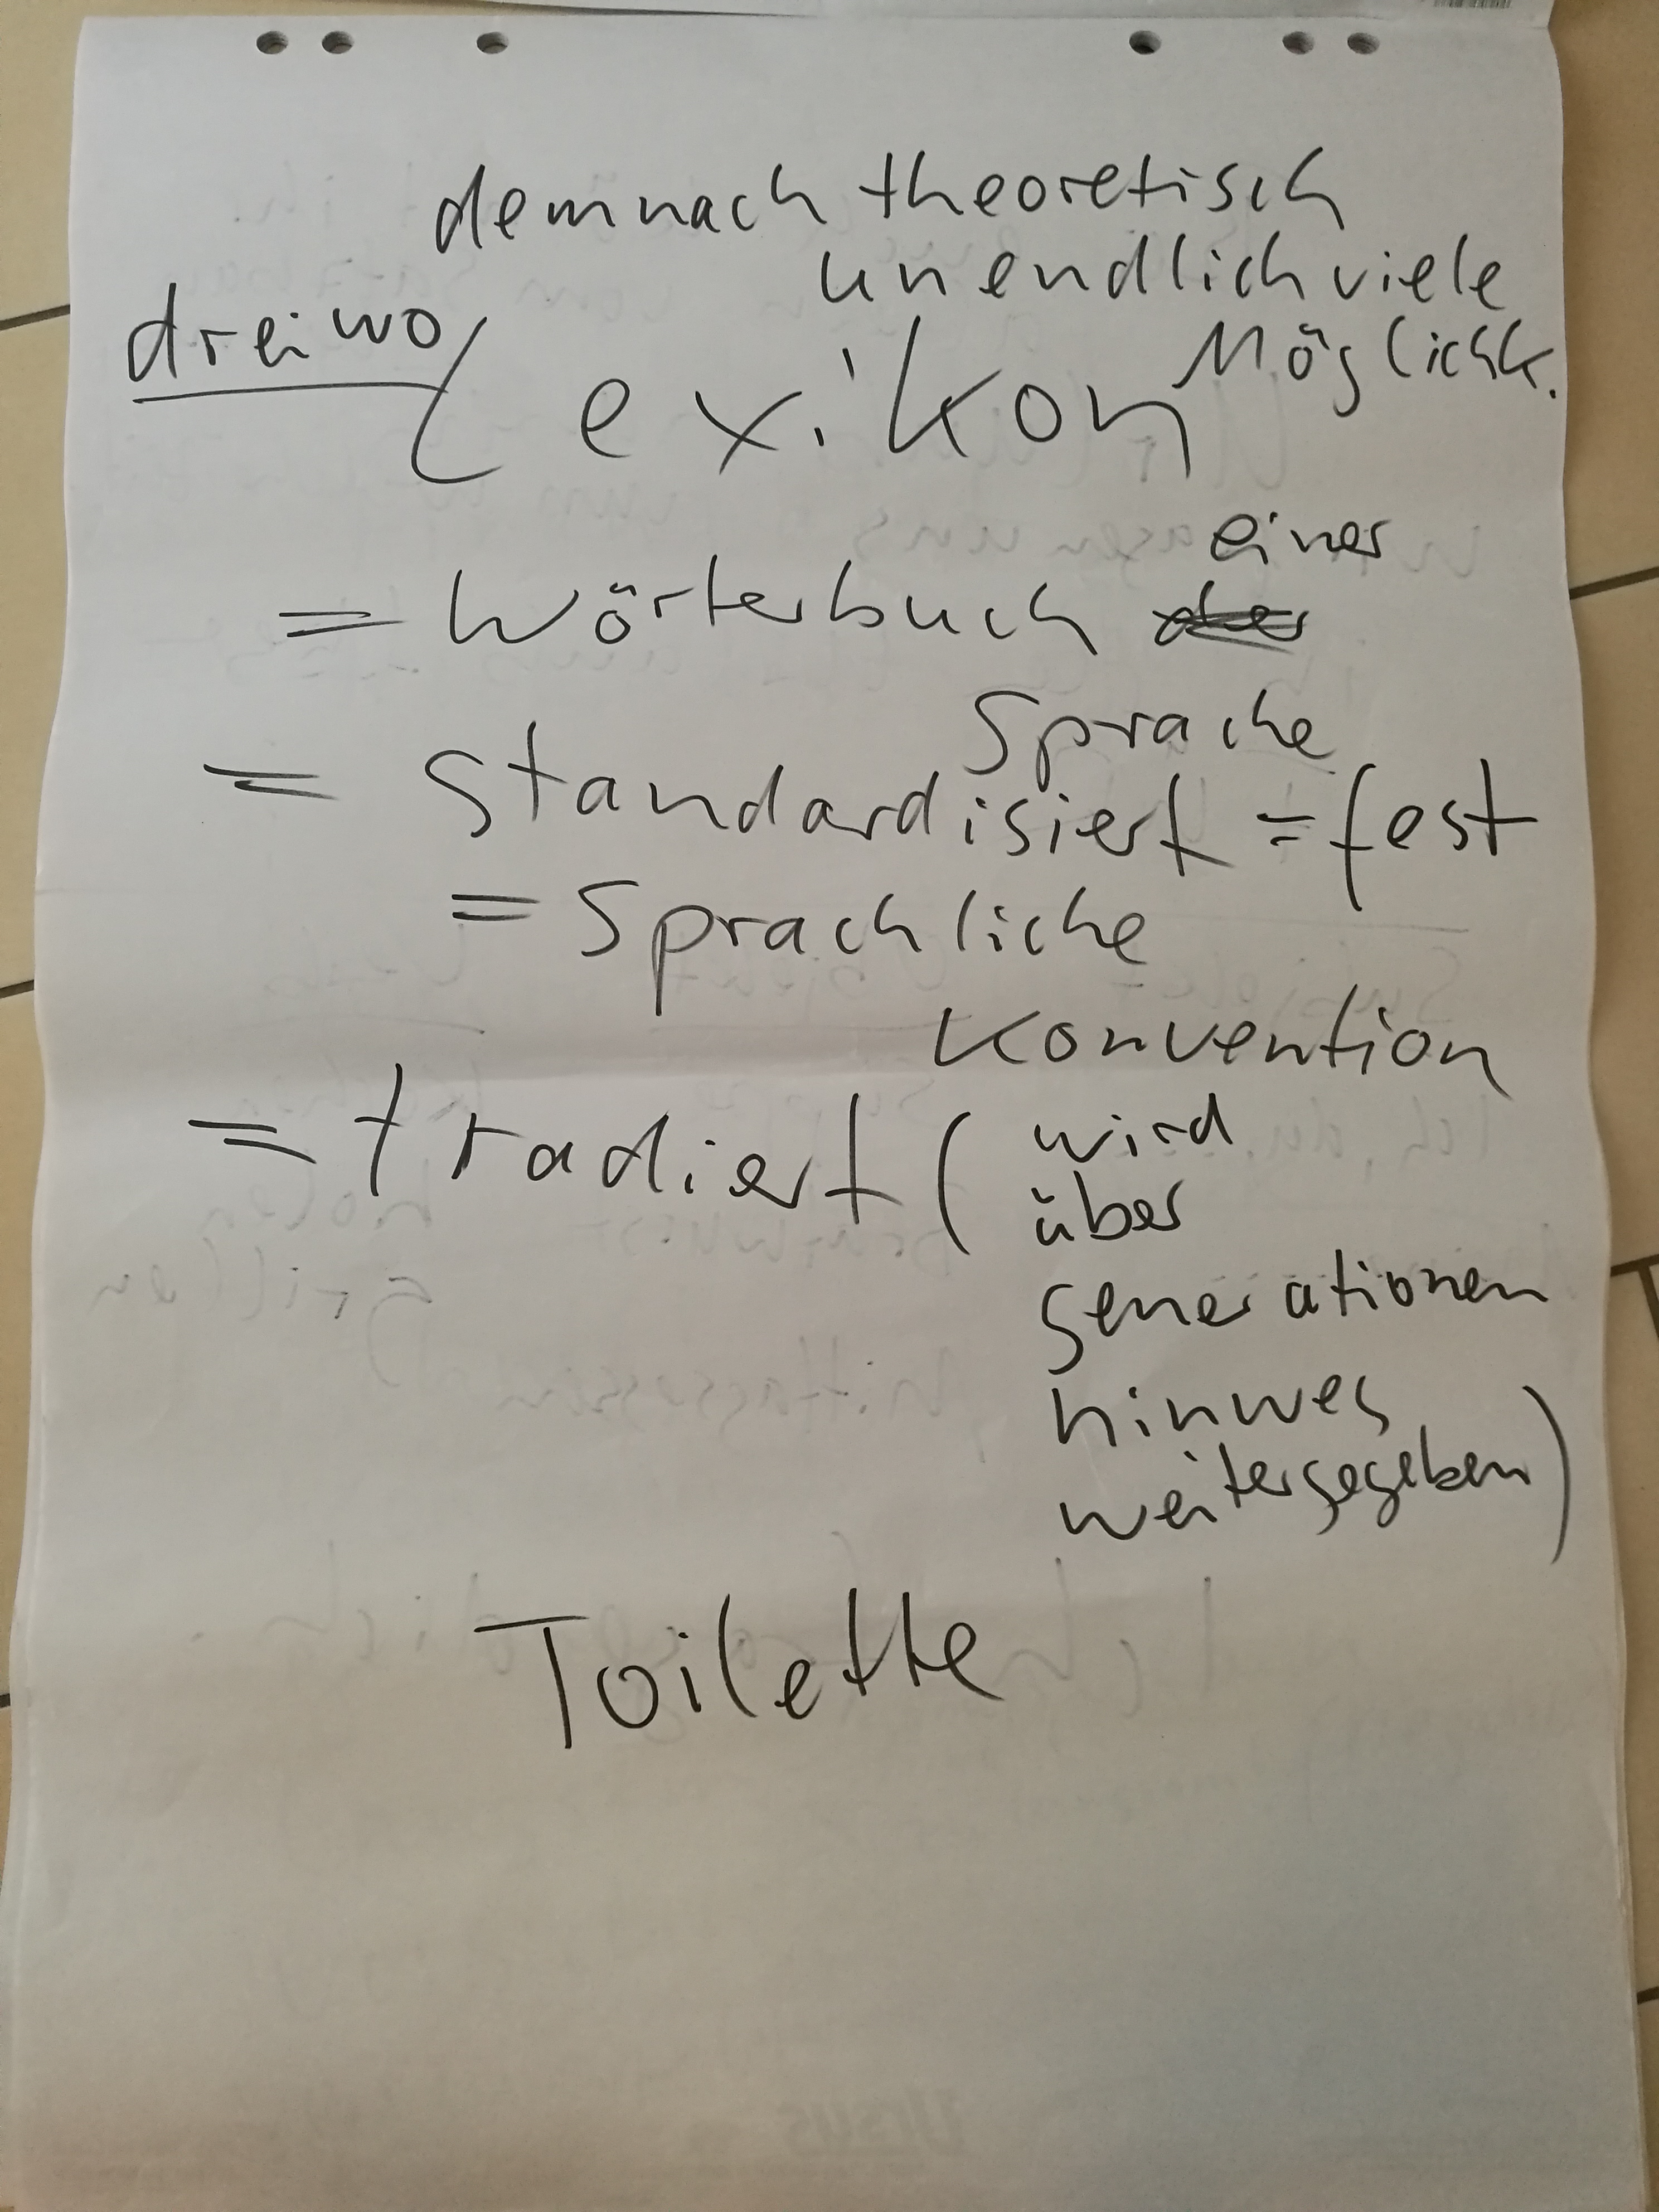 demnach theoretisch
unendlich viele
Möglichk.
dreiwo
Lexikon
= Wörterbuch einer
Sprache
= standardisiert = fest
= Sprachliche
Konvention
= tradiert (wird
über
generationen
hinweg
weitergegeben)
Toilette